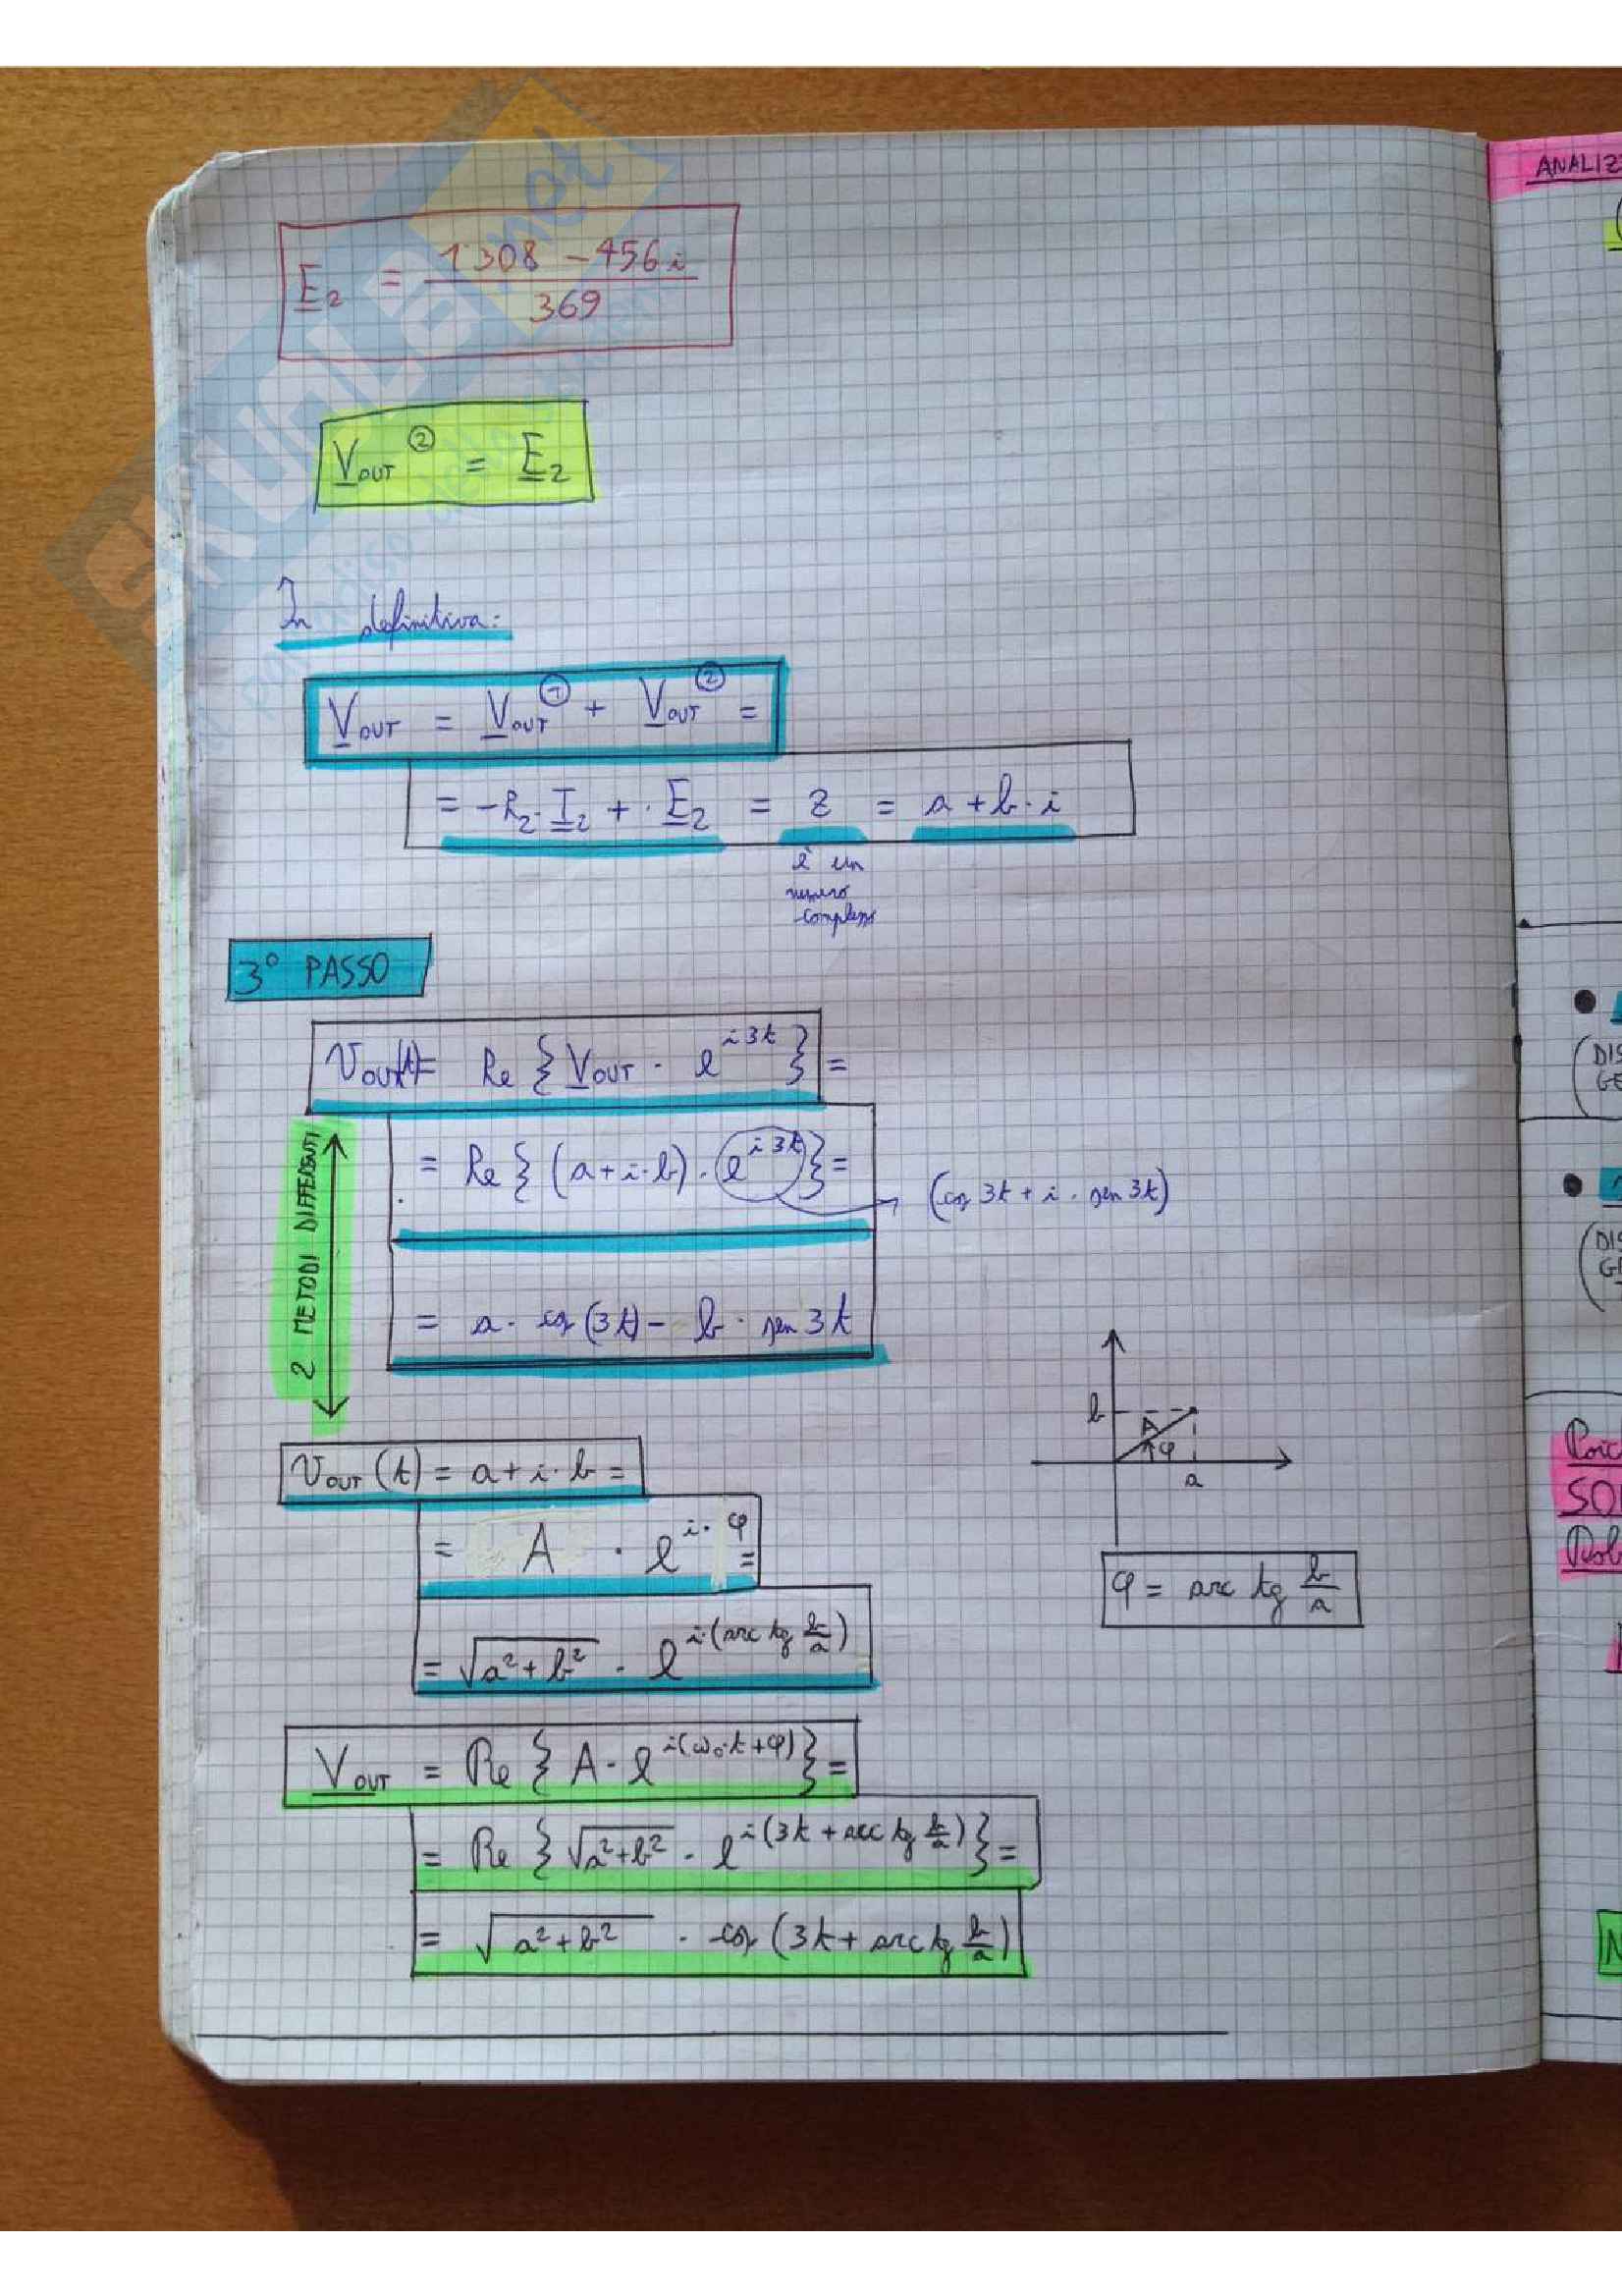 E₂ = (1308 - 456i) / 369
V_OUT^② = E₂
In definitiva:
V_OUT = V_OUT^① + V_OUT^② =
= -R₂·I₂ + · E₂ = z = a + b·i
è un
numero
complesso
3° PASSO
V_OUT(t) = Re { V_OUT · e^{i3t} } =
= Re { (a + i·b) · e^{i3t} } = (cos 3t + i · sen 3t)
= a · cos (3t) - b · sen 3t
2 METODI DIFFERENTI
b
A
φ
a
V_OUT (t) = a + i·b =
= A · e^{i·φ} =
φ = arc tg b/a
= √(a² + b²) · e^{i·(arc tg b/a)}
V_OUT = Re { A · e^{i(ω₀·t + φ)} } =
= Re { √(a² + b²) · e^{i(3t + arc tg b/a)} } =
= √(a² + b²) · cos (3t + arc tg b/a)
ANALIZZ
DIS
GE
DIS
GE
SOL